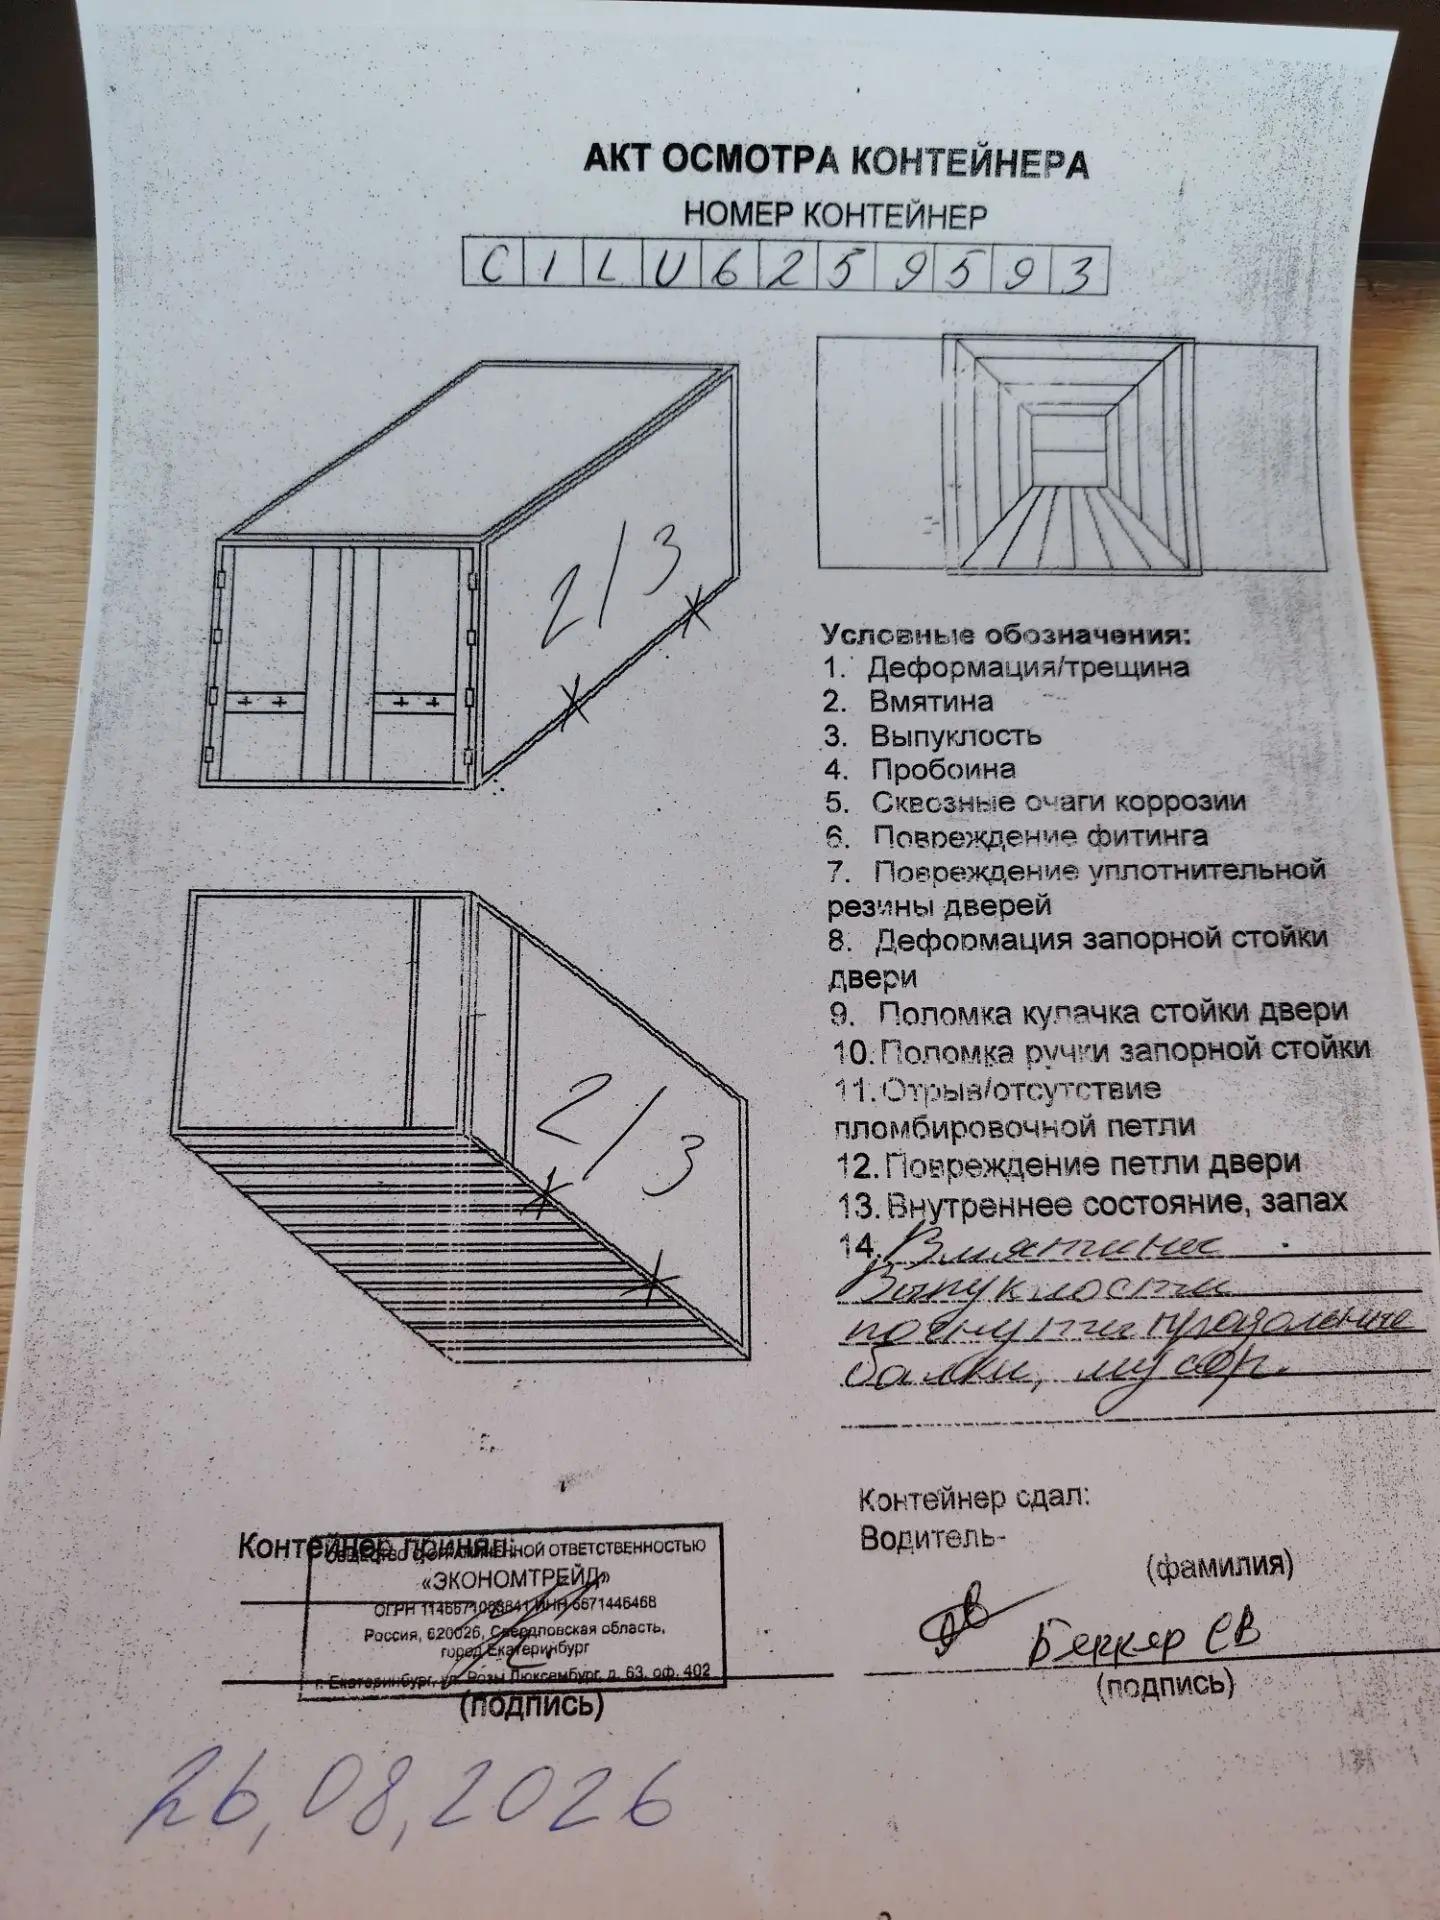 АКТ ОСМОТРА КОНТЕЙНЕРА
НОМЕР КОНТЕЙНЕР
C I L U 6 2 5 9 5 9 3
2/3
Условные обозначения:
1. Деформация/трещина
2. Вмятина
3. Выпуклость
4. Пробоина
5. Сквозные очаги коррозии
6. Повреждение фитинга
7. Повреждение уплотнительной
резины дверей
8. Деформация запорной стойки
двери
9. Поломка кулачка стойки двери
10. Поломка ручки запорной стойки
11. Отрыв/отсутствие
пломбировочной петли
12. Повреждение петли двери
13. Внутреннее состояние, запах
2/3
14. Вмятины
Выпуклости
погнуты продольные
балки, мусор.
Контейнер принял:
ОБЩЕСТВО С ОГРАНИЧЕННОЙ ОТВЕТСТВЕННОСТЬЮ
«ЭКОНОМТРЕЙД»
ОГРН ИНН 6671446468
Россия, 620026, Свердловская область,
город Екатеринбург
г. Екатеринбург, ул. Розы Люксембург, д. 63, оф. 402
(подпись)
Контейнер сдал:
Водитель-
(фамилия)
Беккер СВ
(подпись)
26,08,2026